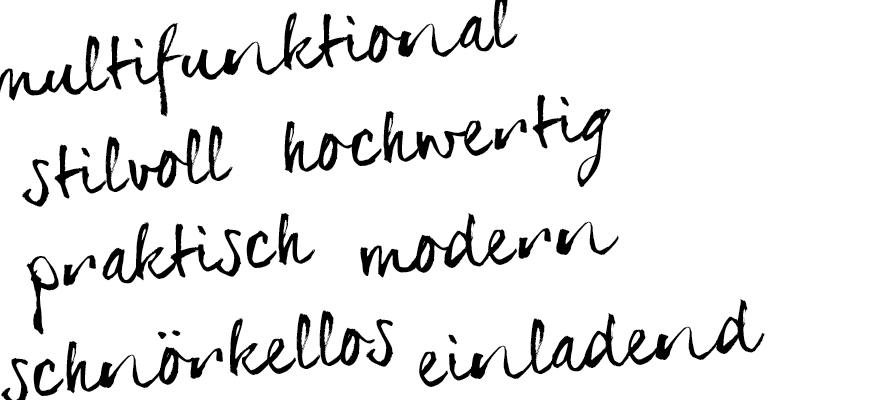 multifunktional
stilvoll hochwertig
praktisch modern
schnörkellos einladend